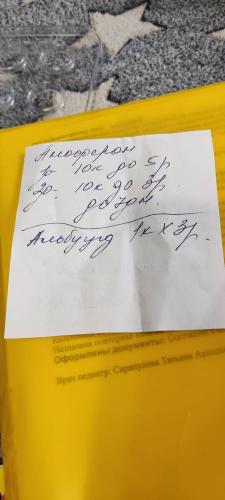 Анаферон
1д- 10к до 5р
2д- 10к до 3р.
до 7дн.
Альбуцид 1к х 3р.
Назначена повторная
Оформлены документы: Согласие
Врач педиатр: Сарапулова Татьяна